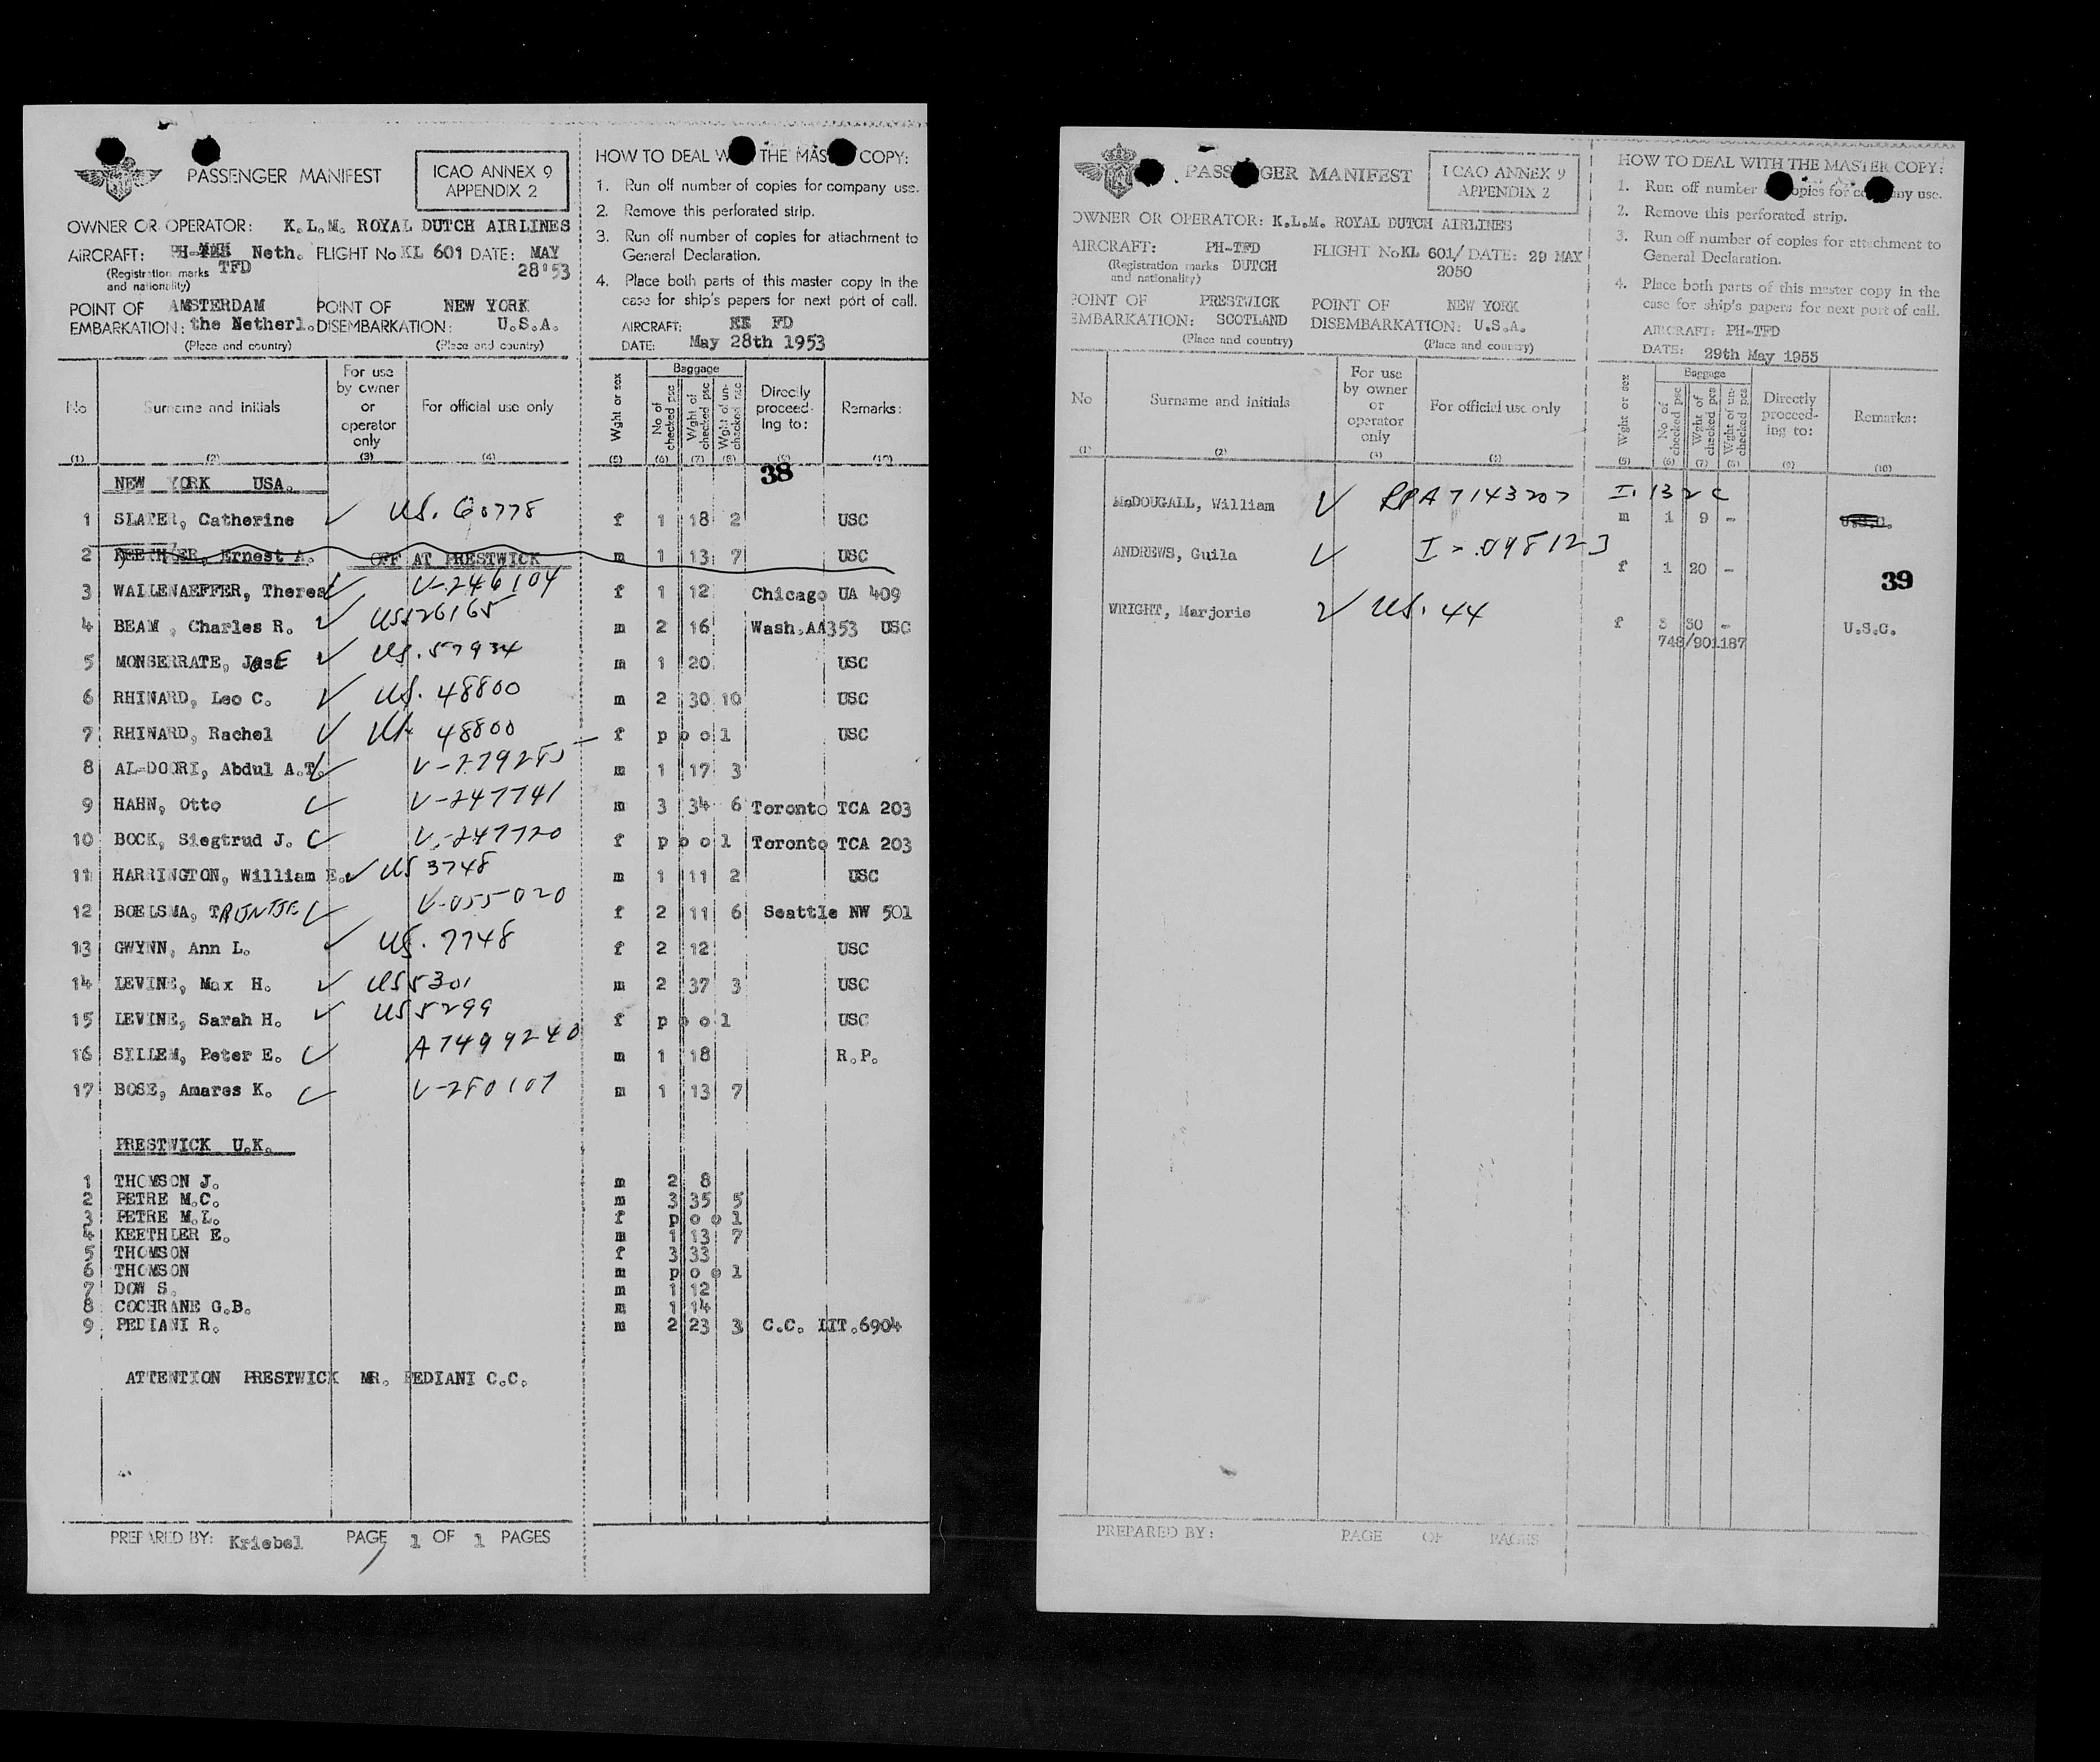 PASSENGER MANIFEST
ICAO ANNEX 9
APPENDIX 2
OWNER OR OPERATOR: K.L.M. ROYAL DUTCH AIRLINES
AIRCRAFT: Neth. FLIGHT No KL 601 DATE: MAY
(Registration marks TFD 28'53
and nationality)
POINT OF AMSTERDAM POINT OF NEW YORK
EMBARKATION: the Netherl. DISEMBARKATION: U.S.A.
(Place and country) (Place and country)
HOW TO DEAL THE COPY:
1. Run off number of copies for company use.
2. Remove this perforated strip.
3. Run off number of copies for attachment to
General Declaration.
4. Place both parts of this master copy in the
case for ship's papers for next port of call.
AIRCRAFT: FD
DATE: May 28th 1953
No
(1)
Surname and initials
(2)
For use
by owner
or
operator
only
(3)
For official use only
(4)
Wght or sex
(5)
Baggage
No of
checked psc
(6)
Wght of
checked psc
(7)
Wght of un-
checked psc
(8)
Directly
proceed-
ing to:
Remarks:
(10)
38
NEW YORK USA.
1 SLATER, Catherine ✓ US. 60778 f 1 18 2 USC
2 Ernest A. OFF AT PRESTWICK m 1 13 7 USC
3 WALLENAEFFER, Theres ✓ V-246104 f 1 12 Chicago UA 409
4 BEAM , Charles R. ✓ US526165 m 2 16 Wash.AA353 USC
5 MONSERRATE, JOSE ✓ US. 57934 m 1 20 USC
6 RHINARD, Leo C. ✓ US. 48800 m 2 30 10 USC
7 RHINARD, Rachel ✓ US 48800 f p o o l USC
8 AL-DOORI, Abdul A.T. ✓ m 1 17 3
9 HAHN, Otto ✓ V-247741 m 3 34 6 Toronto TCA 203
10 BOCK, Siegtrud J. ✓ V-247720 f p o o l Toronto TCA 203
11 HARRINGTON, William E. ✓ US 3748 m 1 11 2 USC
12 BOELSMA, TRIJNTJE ✓ V-055020 f 2 11 6 Seattle NW 501
13 GWYNN, Ann L. ✓ US. 7748 f 2 12 USC
14 LEVINE, Max H. ✓ US5301 m 2 37 3 USC
15 LEVINE, Sarah H. ✓ US5299 f p o o l USC
16 SILLEM, Peter E. ✓ A7499240 m 1 18 R.P.
17 BOSE, Amares K. ✓ V-280107 m 1 13 7
PRESTWICK U.K.
1 THOMSON J. m 2 8
2 PETRE M.C. m 3 35 5
3 PETRE M.L. f p o o l
4 KEETHLER E. m 1 13 7
5 THOMSON f 3 33
6 THOMSON m p o o l
7 DOW S. m 1 12
8 COCHRANE G.B. m 1 14
9 PEDIANI R. m 2 23 3 C.C. LIT.6904
ATTENTION PRESTWICK MR. PEDIANI C.C.
PREPARED BY: Kriebel PAGE 1 OF 1 PAGES
PASSENGER MANIFEST
ICAO ANNEX 9
APPENDIX 2
OWNER OR OPERATOR: K.L.M. ROYAL DUTCH AIRLINES
AIRCRAFT: PH-TFD FLIGHT No KL 601/ DATE: 29 MAY
(Registration marks DUTCH 2050
and nationality)
POINT OF PRESTWICK POINT OF NEW YORK
EMBARKATION: SCOTLAND DISEMBARKATION: U.S.A.
(Place and country) (Place and country)
HOW TO DEAL WITH THE MASTER COPY:
1. Run off number copies for company use.
2. Remove this perforated strip.
3. Run off number of copies for attachment to
General Declaration.
4. Place both parts of this master copy in the
case for ship's papers for next port of call.
AIRCRAFT: PH-TFD
DATE: 29th May 1953
No
(1)
Surname and initials
(2)
For use
by owner
or
operator
only
(3)
For official use only
Wght or sex
(5)
Baggage
No of
checked psc
(6)
Wght of
checked pcs
(7)
Wght of un-
checked pcs
(8)
Directly
proceed-
ing to:
(9)
Remarks:
(10)
McDOUGALL, William ✓ RPA7143207 I. 132 c
m 1 9 - U.S.C.
ANDREWS, Guila ✓ I-.098123
f 1 20 -
39
WRIGHT, Marjorie ✓ US. 44
f 3 30 - U.S.C.
748/901187
PREPARED BY: PAGE OF PAGES